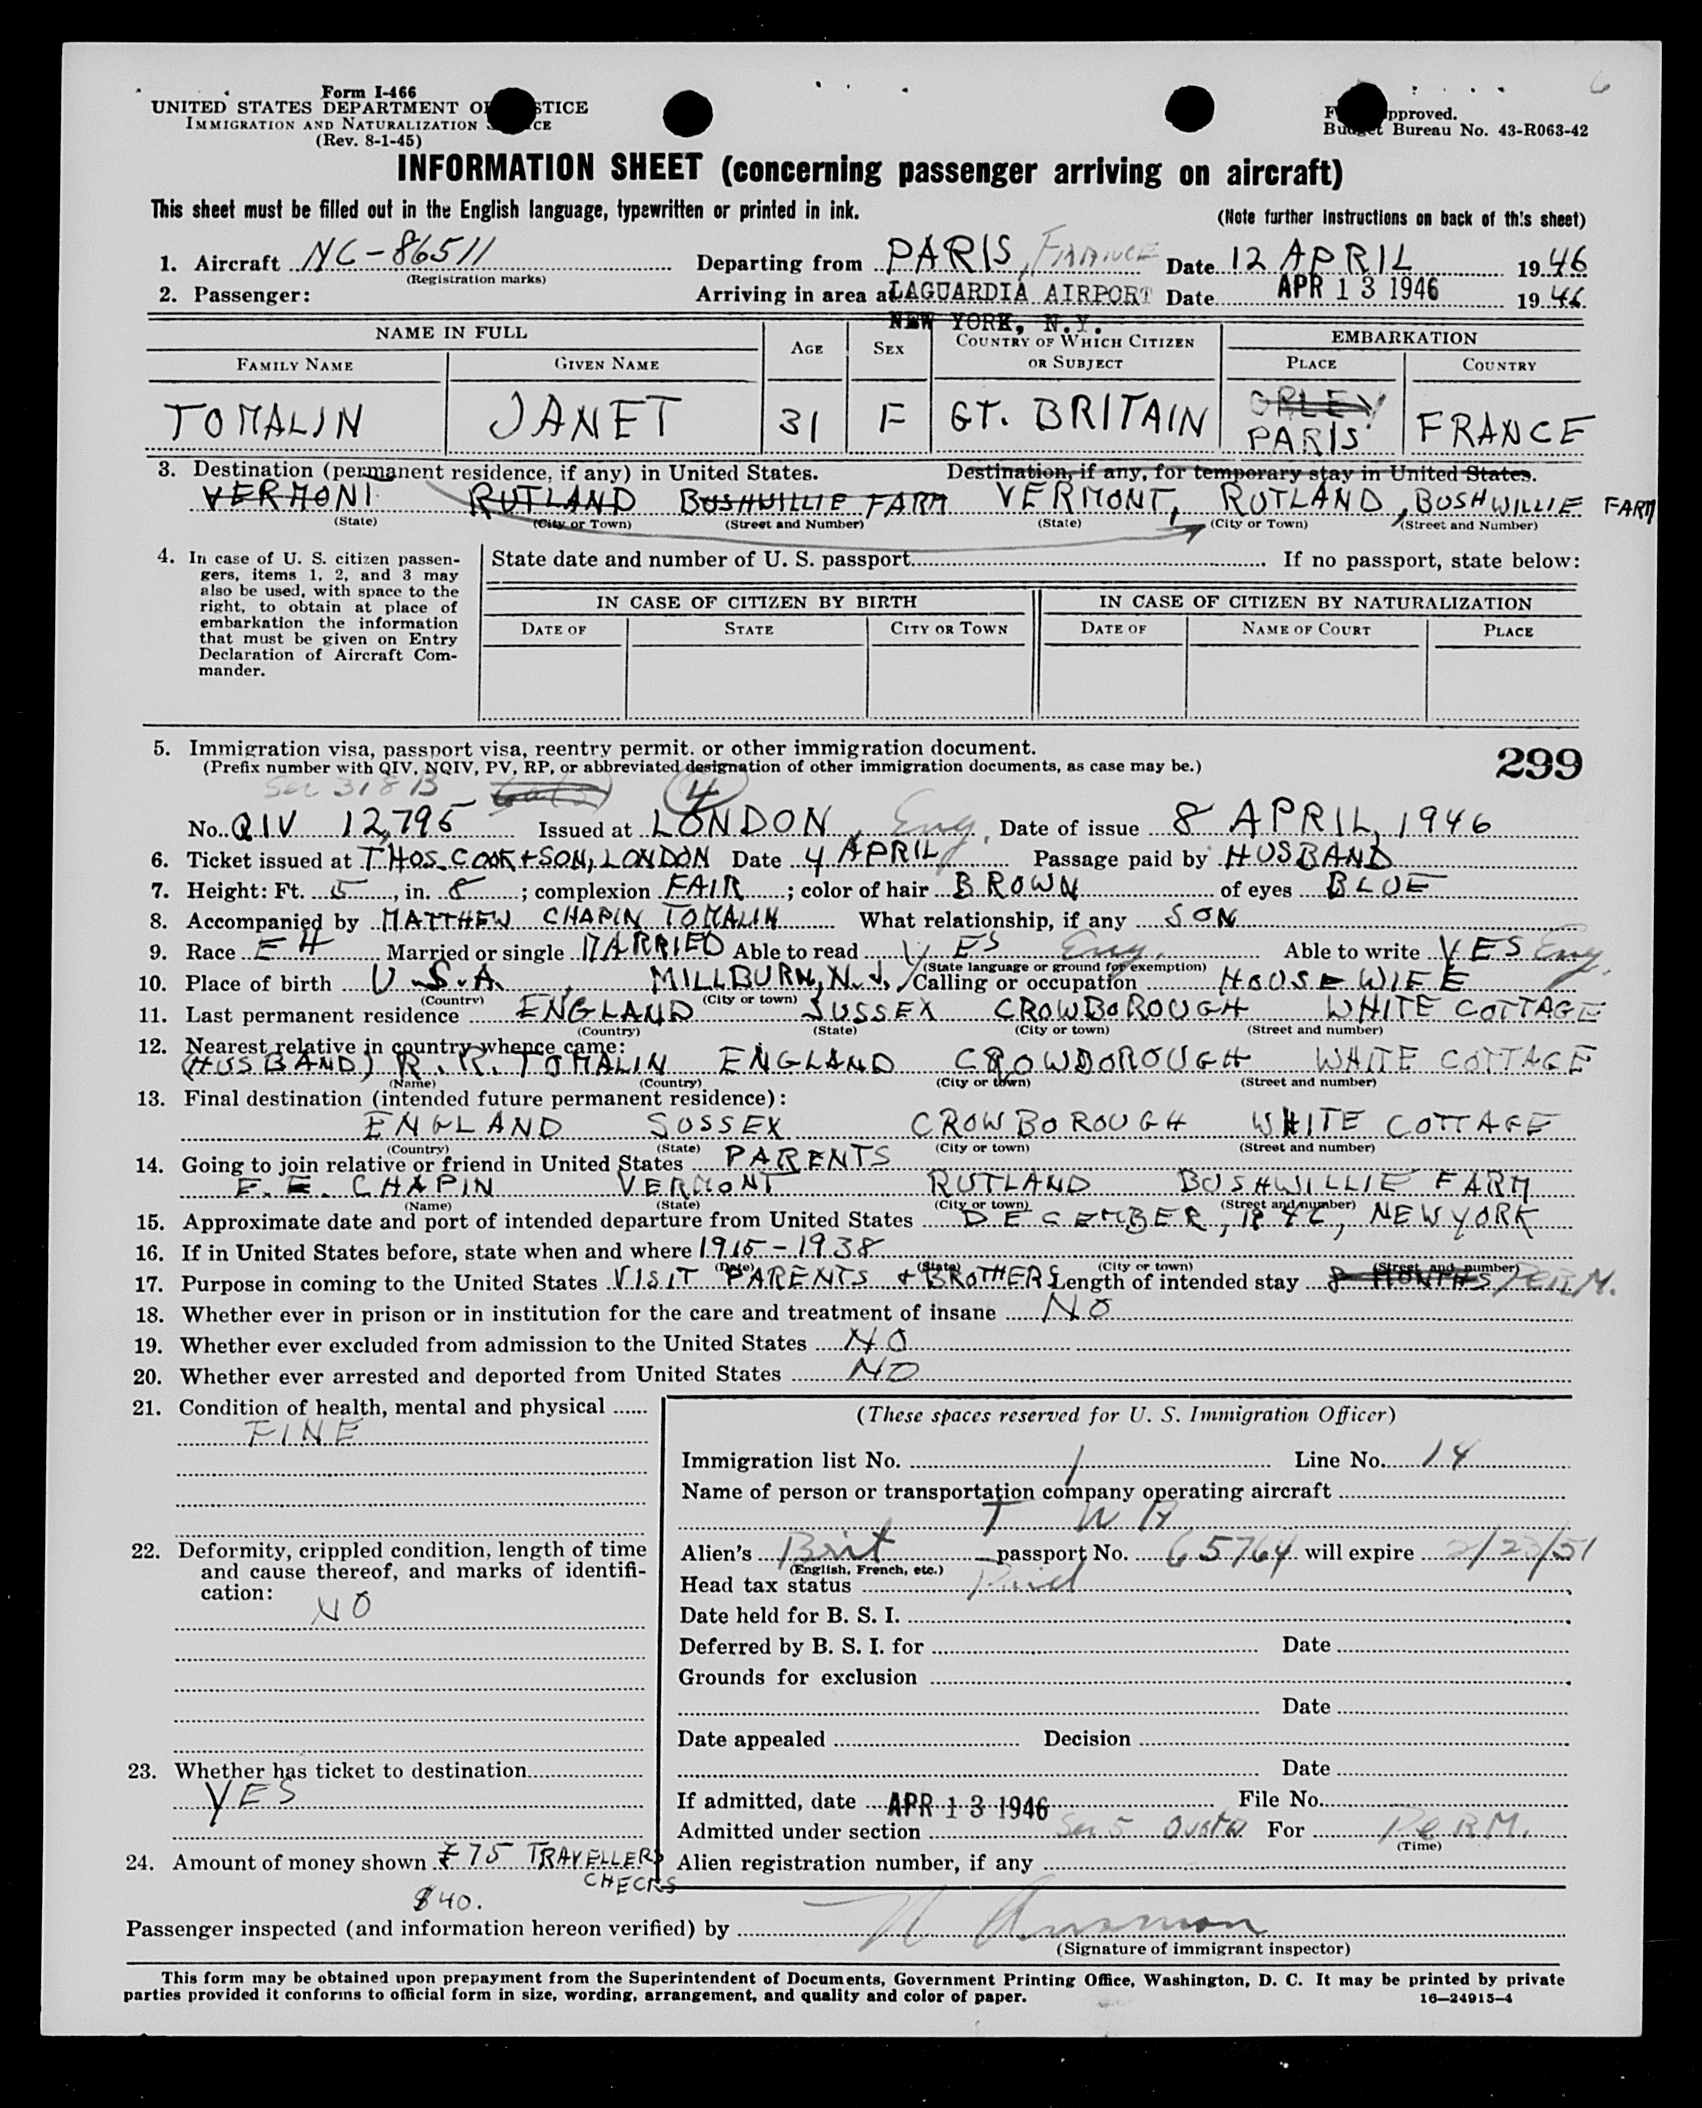 Form I-466
UNITED STATES DEPARTMENT OF JUSTICE
IMMIGRATION AND NATURALIZATION SERVICE
(Rev. 8-1-45)
Form approved.
Budget Bureau No. 43-R063-42
INFORMATION SHEET (concerning passenger arriving on aircraft)
This sheet must be filled out in the English language, typewritten or printed in ink.
(Note further instructions on back of this sheet)
1. Aircraft NC-86511 Departing from PARIS, FRANCE Date 12 APRIL 1946
(Registration marks)
2. Passenger: Arriving in area at LAGUARDIA AIRPORT Date APR 13 1946 1946
NEW YORK, N.Y.
NAME IN FULL AGE SEX COUNTRY OF WHICH CITIZEN OR SUBJECT EMBARKATION
FAMILY NAME GIVEN NAME PLACE COUNTRY
TOMALIN JANET 31 F GT. BRITAIN ORLEY PARIS FRANCE
3. Destination (permanent residence, if any) in United States. Destination, if any, for temporary stay in United States.
VERMONT RUTLAND BUSHWILLIE FARM VERMONT, RUTLAND, BUSHWILLIE FARM
(State) (City or Town) (Street and Number) (State) (City or Town) (Street and Number)
4. In case of U. S. citizen passen-
gers, items 1, 2, and 3 may
also be used, with space to the
right, to obtain at place of
embarkation the information
that must be given on Entry
Declaration of Aircraft Com-
mander.
State date and number of U. S. passport If no passport, state below:
IN CASE OF CITIZEN BY BIRTH IN CASE OF CITIZEN BY NATURALIZATION
DATE OF STATE CITY OR TOWN DATE OF NAME OF COURT PLACE
5. Immigration visa, passport visa, reentry permit, or other immigration document.
299
(Prefix number with QIV, NQIV, PV, RP, or abbreviated designation of other immigration documents, as case may be.)
Sec 318 B 4
No. QIV 12,795 Issued at LONDON, Eng. Date of issue 8 APRIL, 1946
6. Ticket issued at THOS. COOK + SON, LONDON Date 4 APRIL Passage paid by HUSBAND
7. Height: Ft. 5, in. 8; complexion FAIR; color of hair BROWN of eyes BLUE
8. Accompanied by MATTHEW CHAPIN TOMALIN What relationship, if any SON
9. Race EH Married or single MARRIED Able to read YES Eng. Able to write YES Eng.
(State language or ground for exemption)
10. Place of birth U.S.A. MILLBURN, N.J. Calling or occupation HOUSEWIFE
(Country) (City or town)
11. Last permanent residence ENGLAND SUSSEX CROWBOROUGH WHITE COTTAGE
(Country) (State) (City or town) (Street and number)
12. Nearest relative in country whence came:
(HUSBAND) R. R. TOMALIN ENGLAND CROWBOROUGH WHITE COTTAGE
(Name) (Country) (City or town) (Street and number)
13. Final destination (intended future permanent residence):
ENGLAND SUSSEX CROWBOROUGH WHITE COTTAGE
(Country) (State) (City or town) (Street and number)
14. Going to join relative or friend in United States PARENTS
E. E. CHAPIN VERMONT RUTLAND BUSHWILLIE FARM
(Name) (State) (City or town) (Street and number)
15. Approximate date and port of intended departure from United States DECEMBER, 1946, NEW YORK
16. If in United States before, state when and where 1915 - 1938
(Date) (State) (City or town) (Street and number)
17. Purpose in coming to the United States VISIT PARENTS + BROTHERS Length of intended stay 8 MONTHS PERM.
18. Whether ever in prison or in institution for the care and treatment of insane NO
19. Whether ever excluded from admission to the United States NO
20. Whether ever arrested and deported from United States NO
21. Condition of health, mental and physical
FINE
22. Deformity, crippled condition, length of time
and cause thereof, and marks of identifi-
cation:
NO
23. Whether has ticket to destination
YES
24. Amount of money shown £75 TRAVELLERS
CHECKS
$40.
(These spaces reserved for U. S. Immigration Officer)
Immigration list No. 1 Line No. 14
Name of person or transportation company operating aircraft
T W A
Alien's Brit passport No. 65764 will expire 2/23/51
(English, French, etc.)
Head tax status Paid
Date held for B. S. I.
Deferred by B. S. I. for Date
Grounds for exclusion
Date
Date appealed Decision
Date
If admitted, date APR 13 1946 File No.
Admitted under section Sec 5 Quota For PERM.
(Time)
Alien registration number, if any
Passenger inspected (and information hereon verified) by
(Signature of immigrant inspector)
This form may be obtained upon prepayment from the Superintendent of Documents, Government Printing Office, Washington, D. C. It may be printed by private
parties provided it conforms to official form in size, wording, arrangement, and quality and color of paper.
16—24915-4